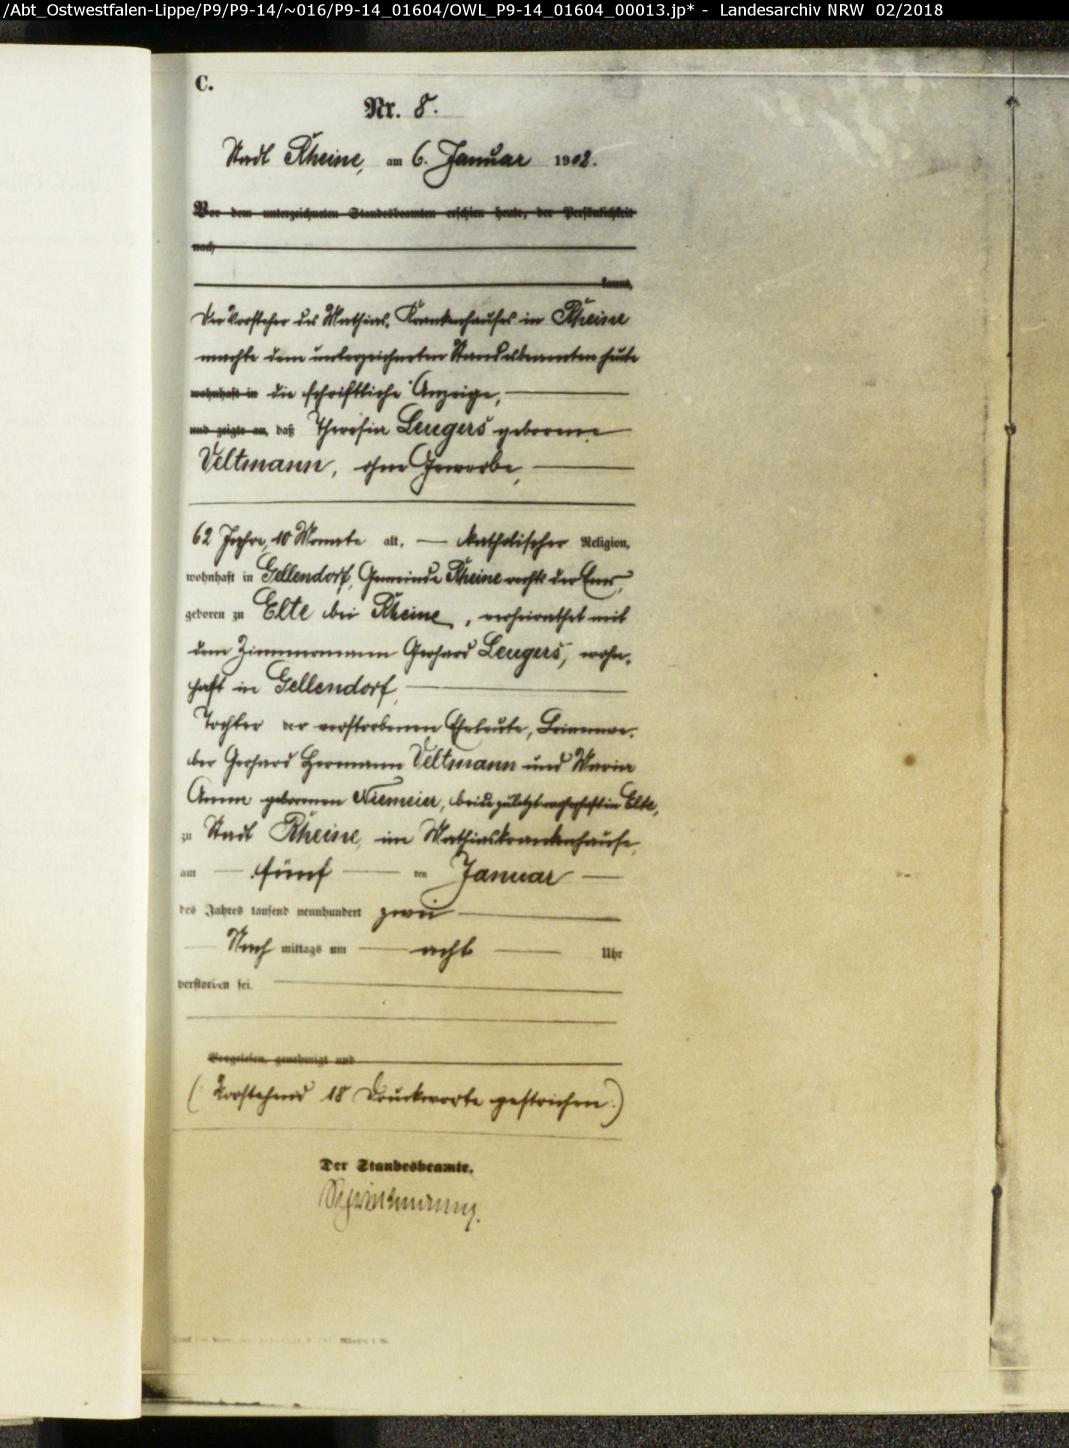 /Abt_Ostwestfalen-Lippe/P9/P9-14/~016/P9-14_01604/OWL_P9-14_01604_00013.jp* - Landesarchiv NRW 02/2018
C.
Nr. 8.
Stadt Rheine, am 6. Januar 1902.
Vor dem unterzeichneten Standesbeamten erschien heute, der Persönlichkeit
nach
kannt,
Der Vorsteher des Mathias-Krankenhauses in Rheine
machte dem unterzeichneten Standesbeamten heute
wohnhaft in die schriftliche Anzeige,
und zeigte an, daß Theresia Leugers geborene
Veltmann, ohne Gewerbe,
62 Jahre, 10 Monate alt, katholischer Religion,
wohnhaft in Gellendorf, Gemeinde Rheine rechts der Ems,
geboren zu Elte bei Rheine, verheirathet mit
dem Zimmermann Gerhard Leugers, wohn-
haft in Gellendorf,
Tochter der verstorbenen Eheleute, Leinewe-
ber Gerhard Hermann Veltmann und Maria
Anna geborenen Niemeier, beide zuletzt wohnhaft in Elte,
zu Stadt Rheine, im Mathiaskrankenhause,
am fünf ten Januar
des Jahres tausend neunhundert zwei
Nach mittags um acht Uhr
verstorben sei.
Vorgelesen, genehmigt und
(Vorstehend 18 Druckworte gestrichen.)
Der Standesbeamte.